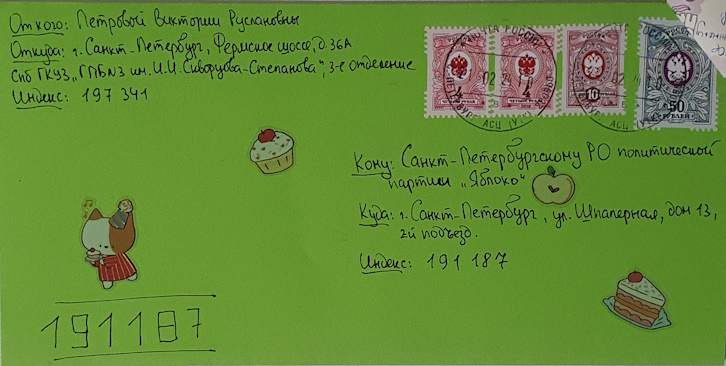 От кого: Петровой Виктории Руслановны
Откуда: г. Санкт-Петербург, Фермское шоссе, д. 36А
СПб ГКУЗ „ГПБ№3 им. И.И. Скворцова-Степанова“, 3-е отделение
Индекс: 197 341
4
4
10
50
РУБЛЕЙ
02 24 1
Кому: Санкт-Петербургскому РО политической
партии „Яблоко“
Куда: г. Санкт-Петербург, ул. Шпалерная, дом 13,
2й подъезд.
Индекс: 191 187
191187